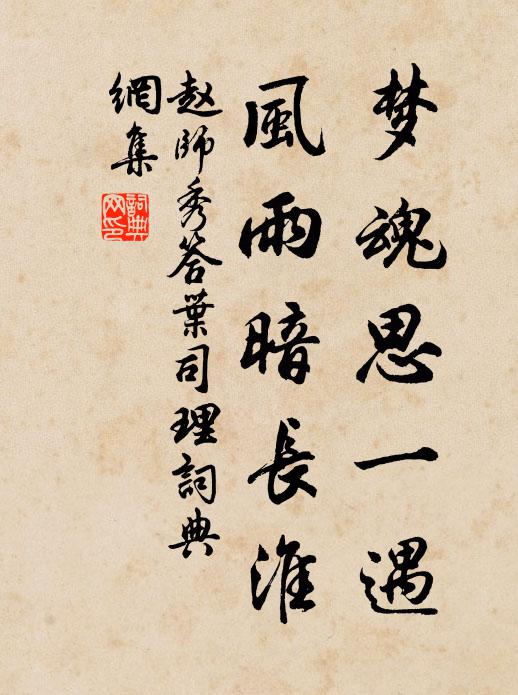 梦魂思一遇
風雨暗長淮
赵師秀答葉司理詞典
網集
詞典
网印